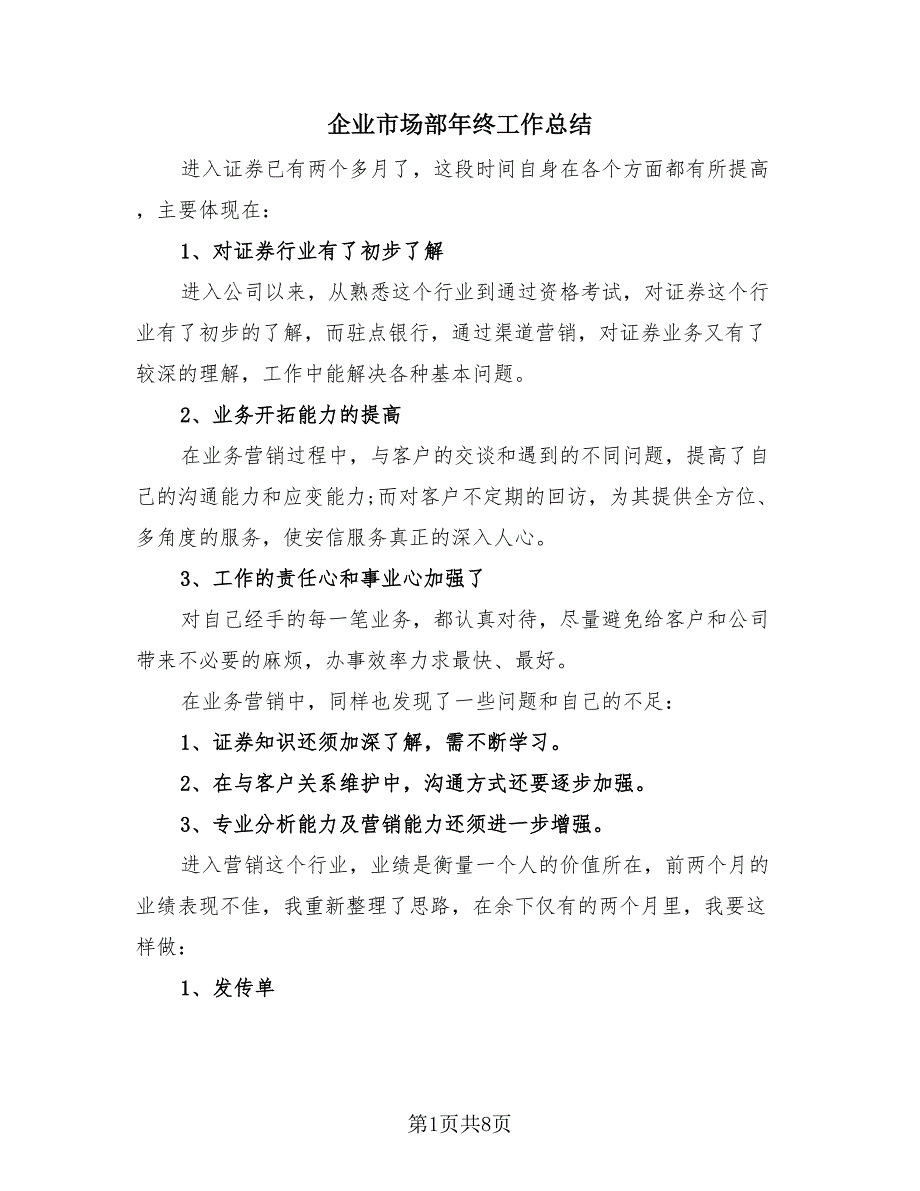 企业市场部年终工作总结
进入证券已有两个多月了，这段时间自身在各个方面都有所提高
，主要体现在：
1、对证券行业有了初步了解
进入公司以来，从熟悉这个行业到通过资格考试，对证券这个行
业有了初步的了解，而驻点银行，通过渠道营销，对证券业务又有了
较深的理解，工作中能解决各种基本问题。
2、业务开拓能力的提高
在业务营销过程中，与客户的交谈和遇到的不同问题，提高了自
己的沟通能力和应变能力;而对客户不定期的回访，为其提供全方位、
多角度的服务，使安信服务真正的深入人心。
3、工作的责任心和事业心加强了
对自己经手的每一笔业务，都认真对待，尽量避免给客户和公司
带来不必要的麻烦，办事效率力求最快、最好。
在业务营销中，同样也发现了一些问题和自己的不足：
1、证券知识还须加深了解，需不断学习。
2、在与客户关系维护中，沟通方式还要逐步加强。
3、专业分析能力及营销能力还须进一步增强。
进入营销这个行业，业绩是衡量一个人的价值所在，前两个月的
业绩表现不佳，我重新整理了思路，在余下仅有的两个月里，我要这
样做：
1、发传单
第1页共8页